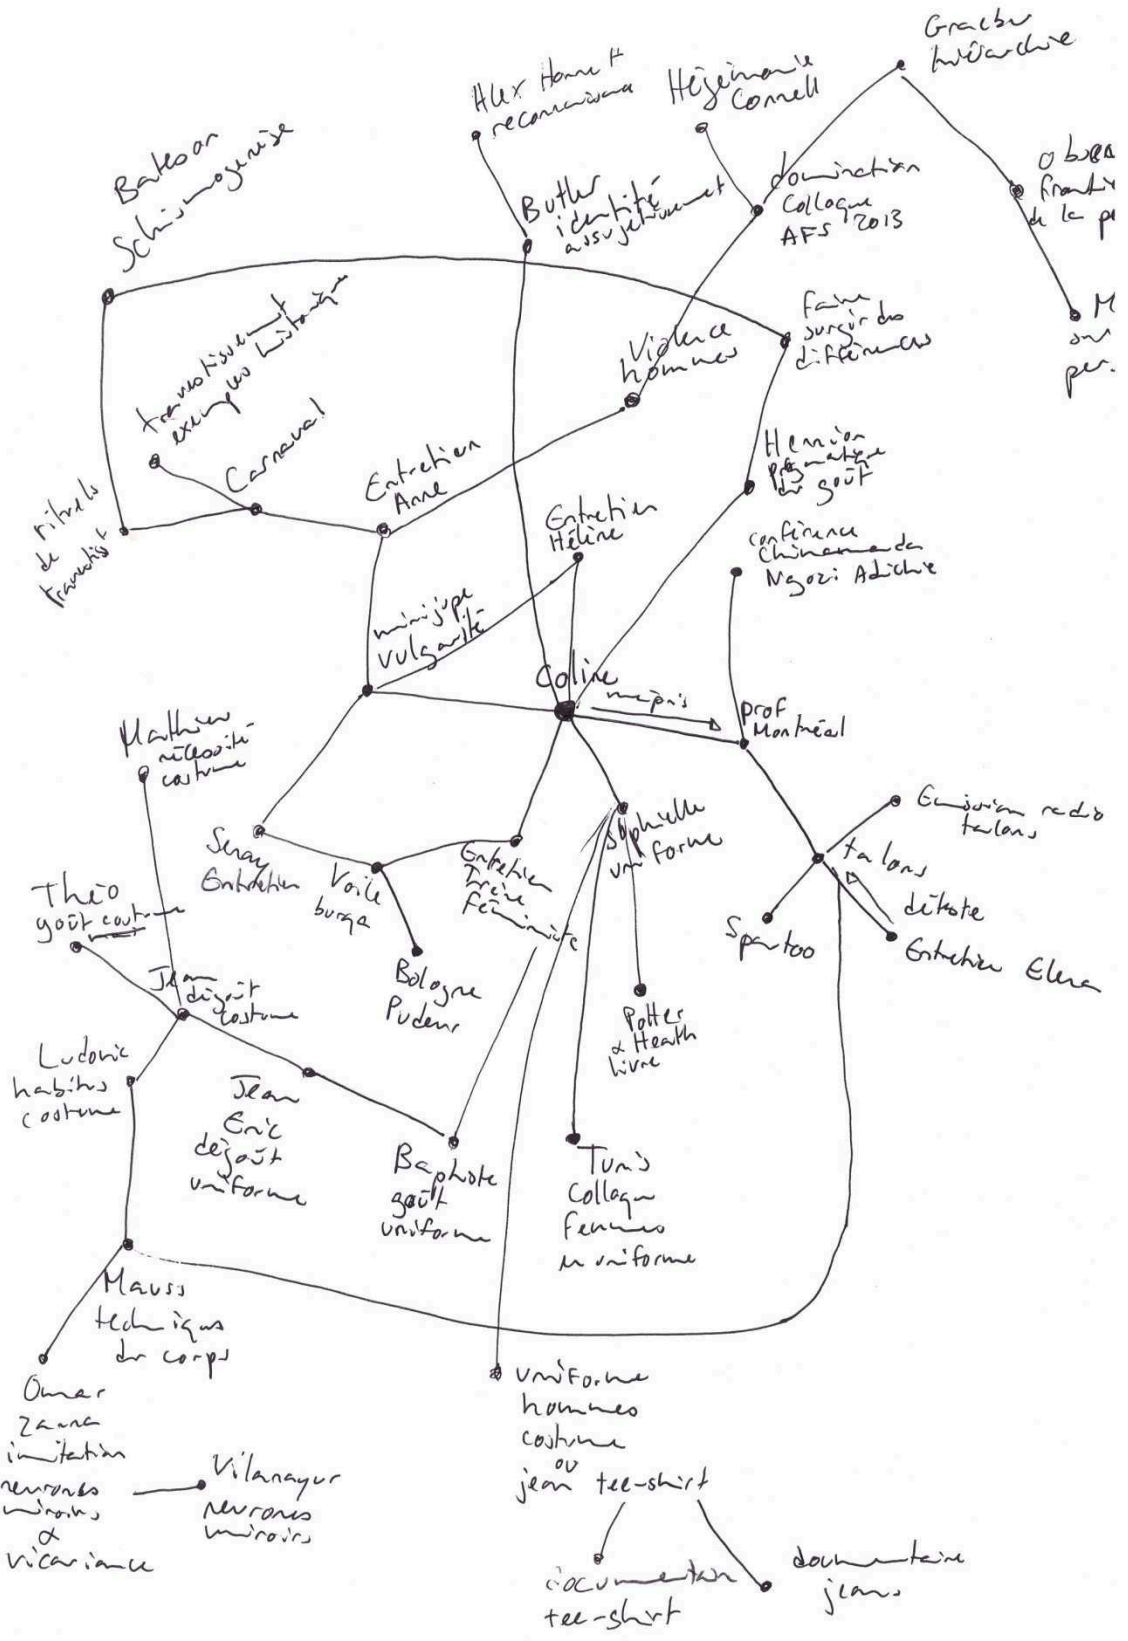 Graeber
hiérarchie
Alex Honneth
reconnaissance
Hégémonie
Connell
Bateson
Schismogenèse
Butler
identité
assujetissement
domination
Colloque
AFS 2013
de la
per.
travestissement
exemples historiques
Violence
hommes
faire
surgir des
différences
Carnaval
Entretien
Anne
Hennion
pragmatique
du goût
rituels
de
travestist
Entretien
Hélène
conférence
Chimamanda
Ngozi Adichie
minijupe
vulgarité
Coline
mépris
prof
Montréal
Mathieu
nécessité
costume
Emission radio
talons
Seray
Entretien
Voile
burqa
Entretien
Irène
féminité
uniforme
talons
déteste
Spartoo
Entretien Elena
Théo
goût costume
Bologne
Pudeur
Jean
dégoût
costume
Potter
& Heath
livre
Ludovic
habitus
costume
Jean
Eric
dégoût
uniforme
Baptiste
goût
uniforme
Tunis
Colloque
femmes
en uniforme
Mauss
techniques
du corps
Omar
Zanna
imitation
neurones
miroirs
&
vicariance
Vilanayur
neurones
miroirs
uniforme
hommes
costume
ou
jean tee-shirt
documentaire
tee-shirt
documentaire
jeans